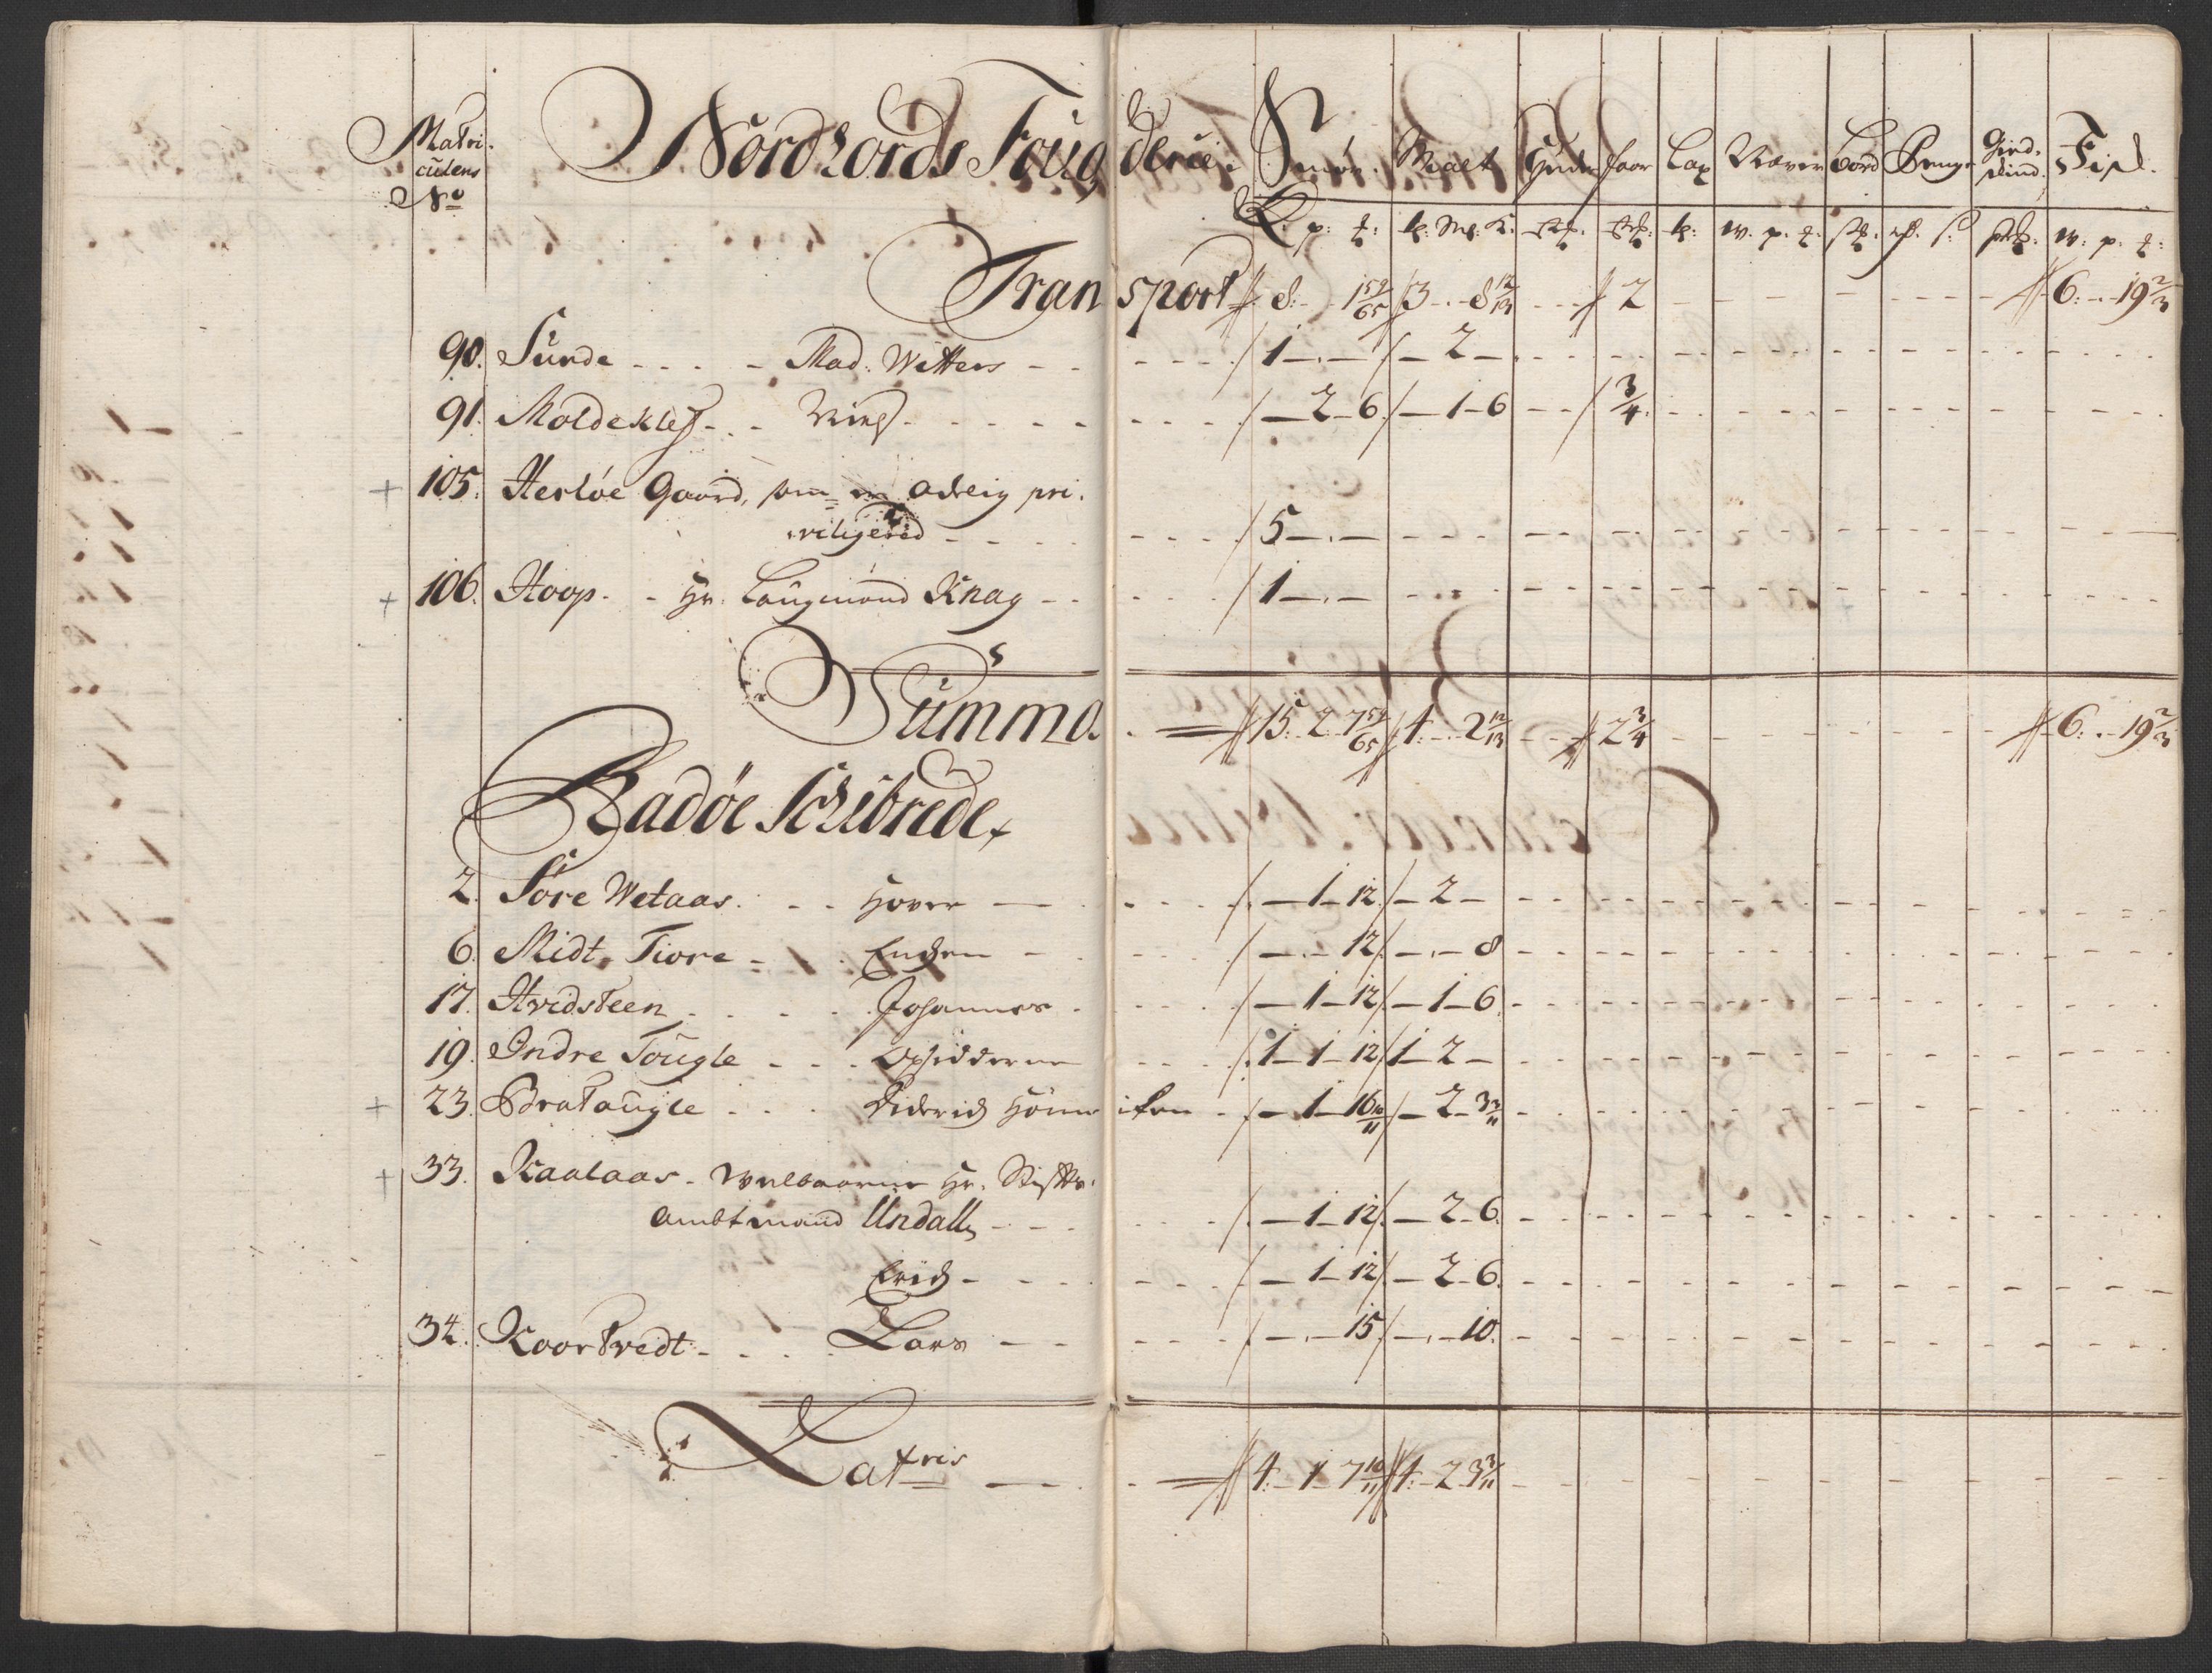 Matri-
culens
No
Nordhords Fougderie. Smør. Malt Huder Faar Lax Næver Bord Penge Giedskind. Fisk.
L. p: ℔: t: Mk: K: stk. stk: t: w. p. ℔: stk: rd. s: stk: w: p: ℔:
Transport 8: - 1 59/65 3 - 8 12/13 - - 2 - - - 6: - 19 2/3
90. Sunde - - - Mad: Witters - - 1 - - 2 -
91. Moldeklef - - Knud - - - 2 - 6 - 1 - 6 - - 3/4
105. Herløe Gaard, som er adelig pri-
viligered - - - 5 - -
106. Hoop - - Hr. Laugmand Knag - - 1 - -
Summa - 15: 2 7 59/65 4 - 2 12/13 - - 2 3/4 - - - 6: - 19 2/3
Radøe Schibrede.
2. Søre Wetaas - - - 1 - 12 - 2 -
6. Midt Fiore - - - - 12 - - 8
17. Hvidsteen - - - Johannes - - 1 - 12 - 1 - 6
19. Indre Tougle - - - Opsidderne - - 1 - 1 - 12 1 - 2 -
23. Bratougle - - - Diderich - - 1 - 16 10/11 - 2 - 3 3/11
33. Kaalaas - Welbaarne Hr. Stiffts-
Ambtmand Undall - - - 1 - 12 - 2 - 6
Erich - - - 1 - 12 - 2 - 6
34. Koortvedt - - - Lars - - - - 15 - - 10
Latris - 4: - 1 - 7 10/11 4: - 2 - 3 3/11